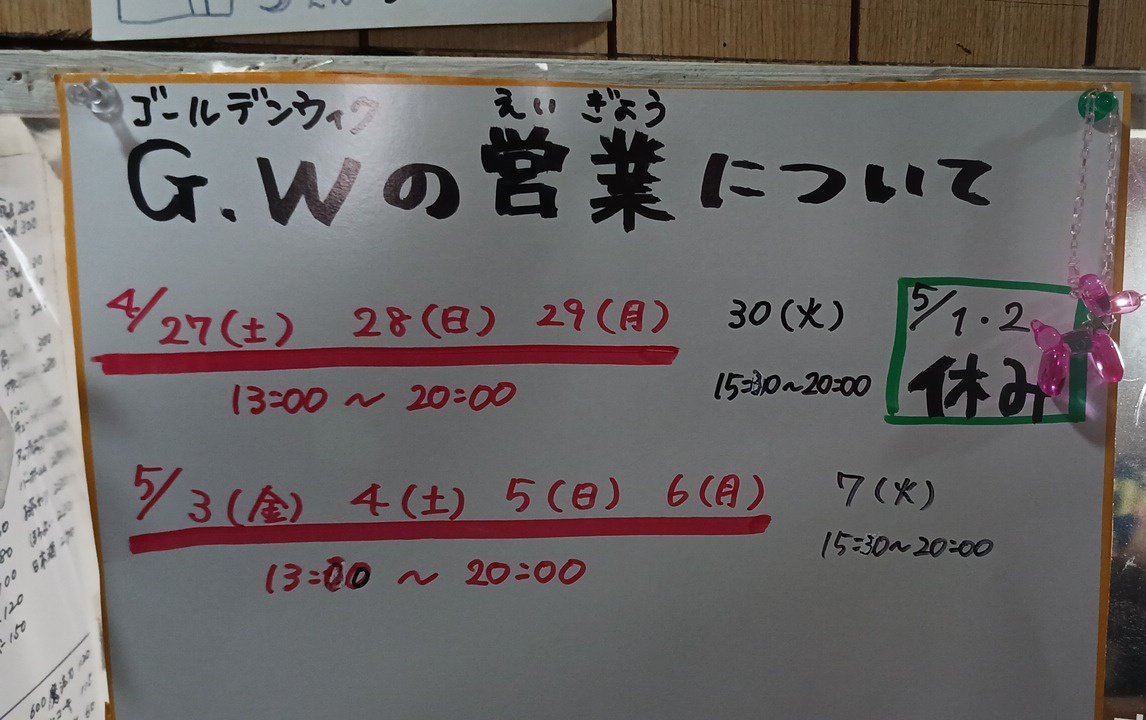 ゴールデンウィク
えいぎょう
G.Wの営業について
4/27(土) 28(日) 29(月) 30(火)
13:00 ~ 20:00
15:30~20:00
5/1・2
休み
5/3(金) 4(土) 5(日) 6(月) 7(火)
13:00 ~ 20:00
15:30~20:00